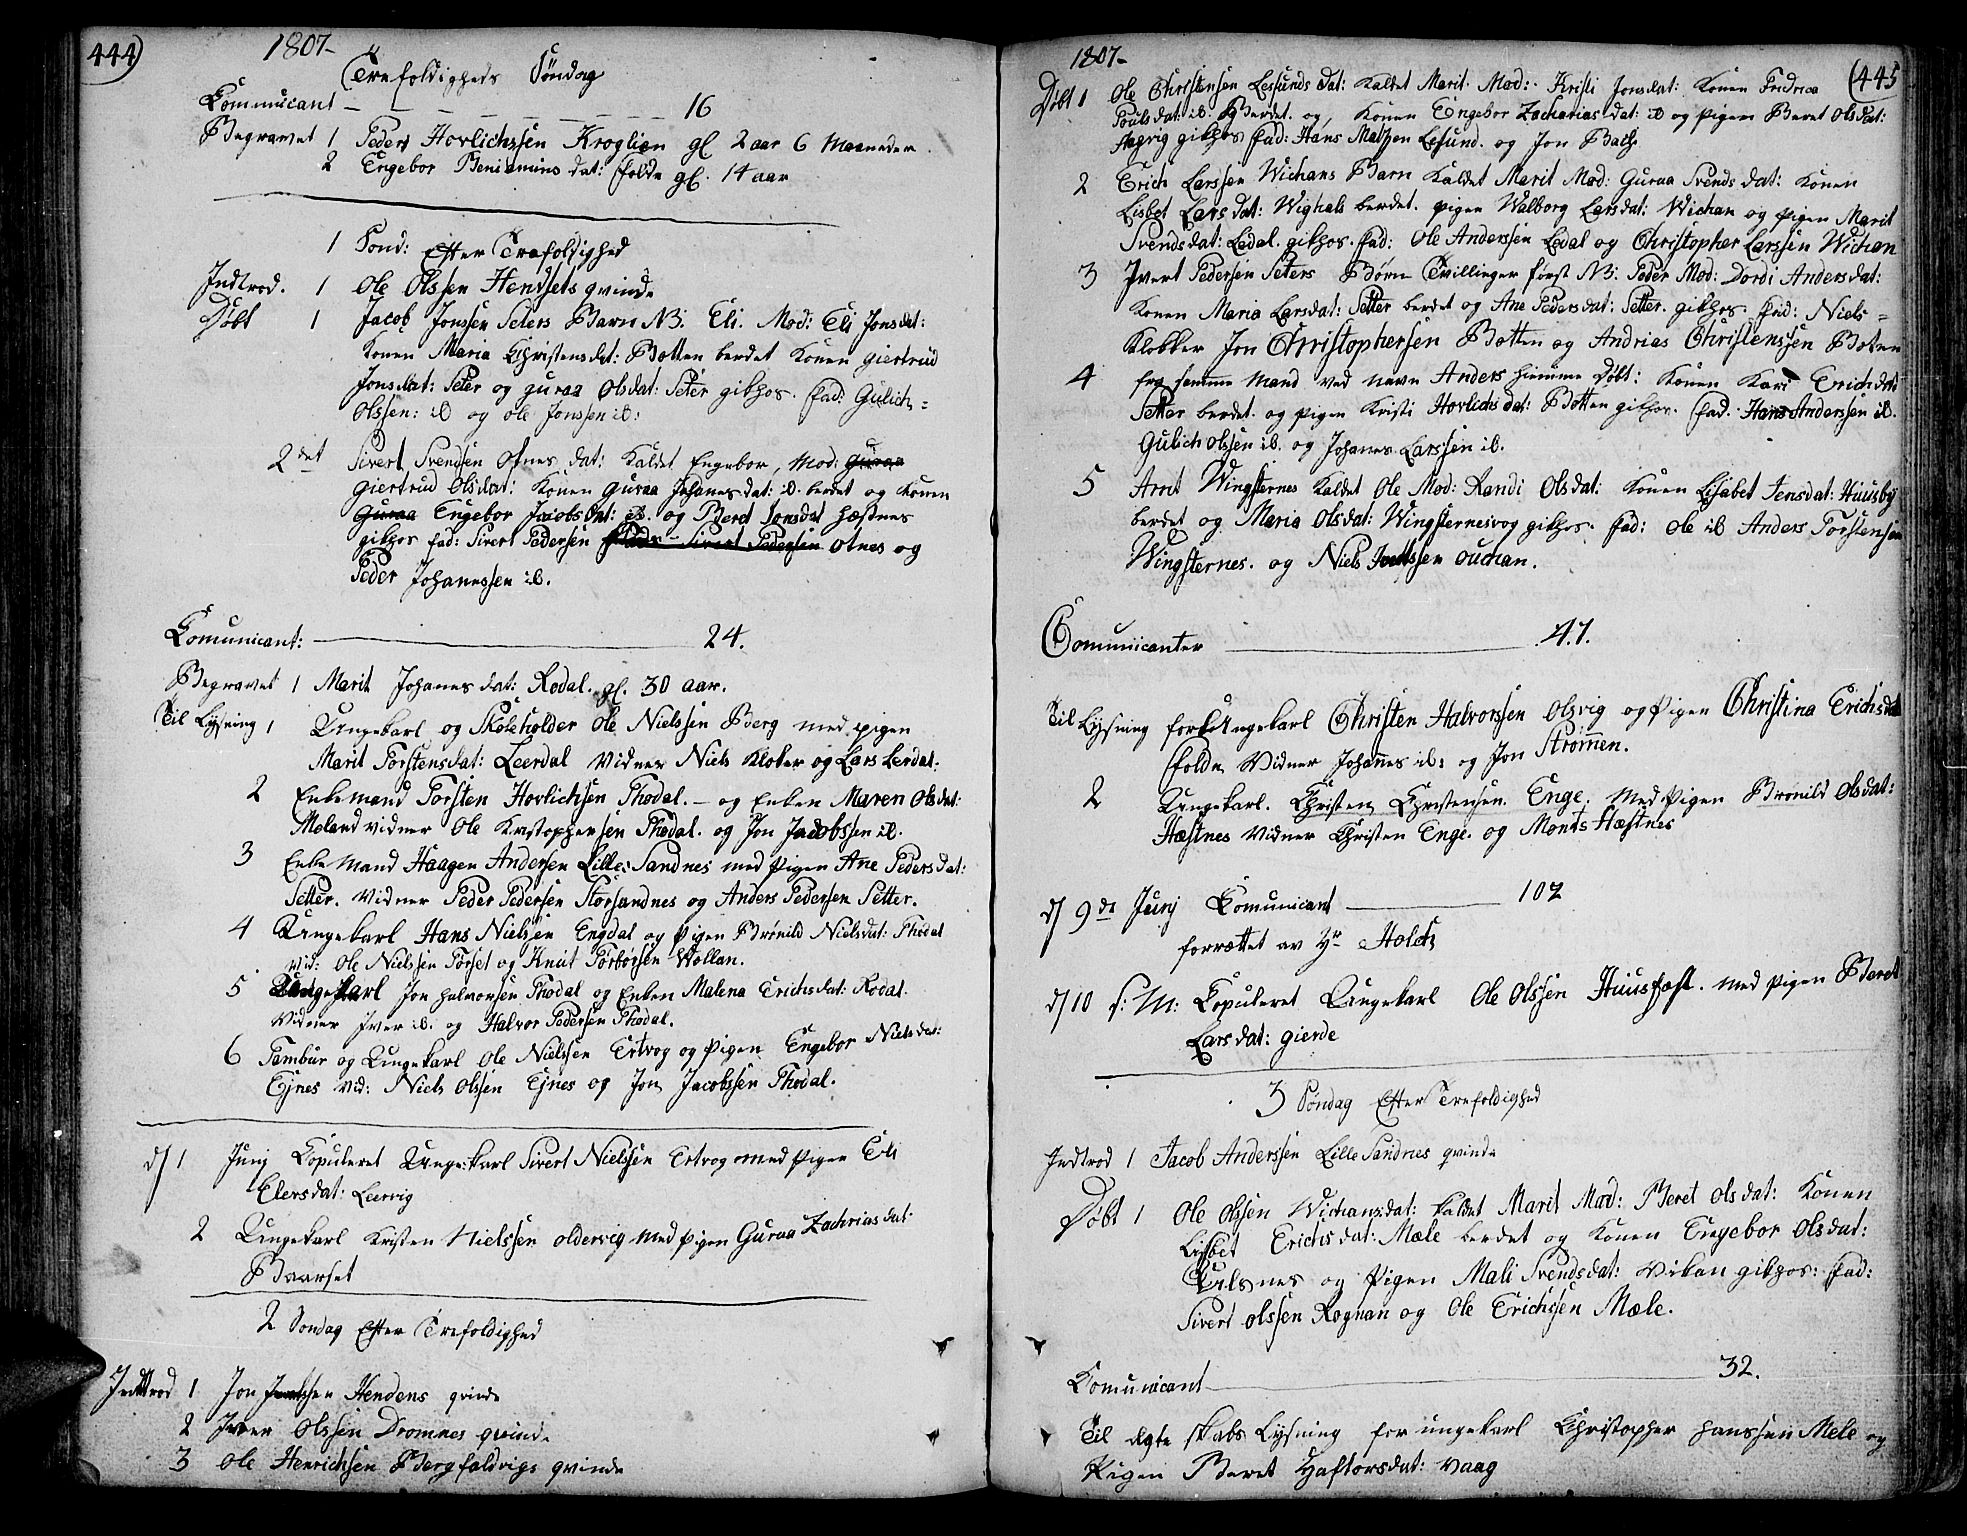 444)
1807-
Trefoldigheds Söndag
Communicant — — — — — — 16
Begravet 1 Peder Hovlichssen Kroglien gl 2 aar 6 Maaneder.
2 Engebor Beniamins dat: Folde gl. 14 aar
1 Sönd: Efter Trefoldighed
Indtrod. 1 Ole Olssen Hendsets qvinde
Döbt 1 Jacob Jonssen Seters Barn N: Eli. Mod: Eli Jonsdat:
Konen Maria Christensdat: Botten berdet Konen giertrud
Jonsdat: Seter og guraa Olsdat: Seter gik hos. Fad: Gulich=
Olssen: ib og ole Jonssen ib:
2det Sivert Svendsen Otnes dat: Kaldet Engebor, Mod: Guraa
Giertrud Olsdat: Konen Guraa Johanesdat: ib. berdet og Konen
Guraa Engebor Jacobsdat: ib. og Beret Jonsdat Hæstnes
gikhos Fad: Sivert Pedersen Otnes og
Peder Johanessen ib.
Comunicant: — 24.
Begravet 1 Marit Johanes dat: Rodal. gl. 30 aar.
Til Lysning 1 Ungekarl og Skoleholder Ole Nielssen Berg med pigen
Marit Torstensdat: Leerdal Vidner Niels Kloker og Lars Lerdal:
2 Enkemand Torsten Hovlichsen Thodal. — og Enken Maren Olsdat:
Meland vidner Ole Kristophersen Thodal. og Jon Jacobssen ib.
3 Enke Mand Haagen Andersen Lille: Sandnes med pigen Ane Pedersdat:
Setter. Vidner Peder Pedersen Storsandnes og Anders Pedersen Setter.
4 Ungekarl Hans Nielsen Engdal og Pigen Brönild Nielsdat: Thodal
Vid: Ole Nielssen Torset og Knut Torbörsen Wollan.
5 Ungekarl Jon halvorsen Thodal og Enken Malena Erichsdat: Rodal.
Vidner Iver ib. og Halvor Pedersen Thodal.
6 Tambur og Ungekarl Ole Nielssen Ertvog og Pigen Engebor Nielsdat:
Ejnes vid: Niels Olssen Ejnes og Jon Jacobssen Thodal.
d/ 1 Junj Copuleret Ungekarl Sivert Nielssen Ertvog med Pigen Eli
Elersdat: Leervig
2 Ungekarl Kristen Nielssen oldervig med Pigen Guraa Zachrias dat:
Baarset
2 Söndag Efter Trefoldighed
Indtrod 1 Jon Hendens qvinde
2 Iver Olssen Dromnes qvinde
3 Ole Henrichsen Bergfaldvigs qvinde
1807-
(445
Döbt 1 Ole Christensen Lesunds dat: Kaldet Marit. Mod: Kristi Jonsdat: Konen Fredrica
Povls dat: ib. Berdet. og, Konen Engebor Zacharias dat: ib og pigen Beret Olsdat:
Aagvig gikhos Fad: Hans Matzen Lesund. og Jon Bach
2 Erich Larssen Wichans Barn Kaldet Marit Mod: Guraa Svends dat: Konen
Lisbet Lars dat: Wighals berdet. pigen Walborg Larsdat: Wichan og pigen Marit
Svendsdat: Ledal. gikhos. Fad: Ole Anderssen Ledal og Christopher Larssen Wichan
3 Ivert Pedersen Seters Börn Tvillinger först N: Peder Mod: Dordi Andersdat:
Konen Maria Larsdat: Setter berdet og Ane Pedersdat: Setter. gikhos. Fad: Niels=
Klokker Jon Christophersen Botten og Andrias Christenssen Boten
4 for samme Mand ved navn Anders hiemme Döbt: Konen Kari Erichdat
Setter berdet. og pigen Kristi Hovlichsdat: Botten gikhos. Fad. Hans Anderssen ib.
Gulich olssen ib. og Johanes Larssen ib.
5 Arnt Wingsternes Kaldet Ole Mod: Randi Olsdat: Konen Lisabet Jensdat: Huusby
berdet og Maria Olsdat: Wingsternesvog gikhos. Fad: Ole ib Anders Torstensen
Wingsternes. og Niels ouchan.
Comunicanter — 41.
Til Lysning for Ungekarl Christen Halvorssen Olsvig og Pigen Christina Erichsdat
Foldn Vidner Johannes ib: og Jon Strömen.
2 Ungekarl. Christen Christensen. Enge. Med Pigen Bronild Olsdat:
Hæstnes Vidner Christen Enge. og Monts Hæstnes
d/ 9de Junj Comunicant — 102
forrættet av Hr Holch
d/ 10 s: M: Copuleret Ungekarl Ole Olssen Huusfast. med Pigen Beret
Larsdat: gierde
3 Söndag Efter Trefoldighed
Indtrod 1 Jacob Anderssen Lille Sandnes qvinde
Döbt 1 Ole Olssen Wichansdat: kaldet Marit Mod: Beret olsdat: Konen
Lisbet Erichsdat: Mæle berdet og Konen Engebor Olsdat:
Ulsnes og Pigen Mali Svendsdat: Vikan gikhos: Fad:
Sivert olssen Rognan og Ole Erichssen Mæle.
Comunicant — 32.
Til Ægte skabs Lysning for ungekarl Christopher Hanssen Mele og
Pigen Beret Haftorsdat: Vaag